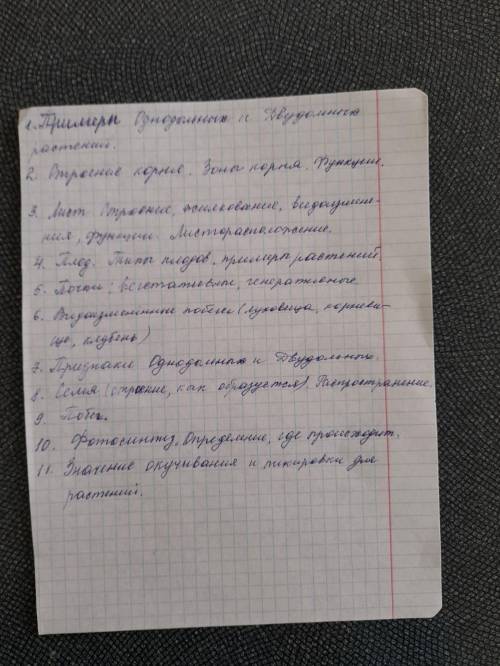 1. Примеры Однодольных и Двудольных
растений.
2. Строение корня. Зоны корня. Функции.
3. Лист. Строение, жилкование, видоизмене-
ния, функции. Листорасположение.
4. Плод. Типы плодов, примеры растений.
5. Почки: вегетативные, генеративные
6. Видоизменённые побеги (луковица, корневи-
ще, клубень)
7. Признаки Однодольных и Двудольных.
8. Семя (строение, как образуется). Распространение.
9. Побег.
10. Фотосинтез. Определение, где происходит.
11. Значение окучивания и пикировки для
растений.